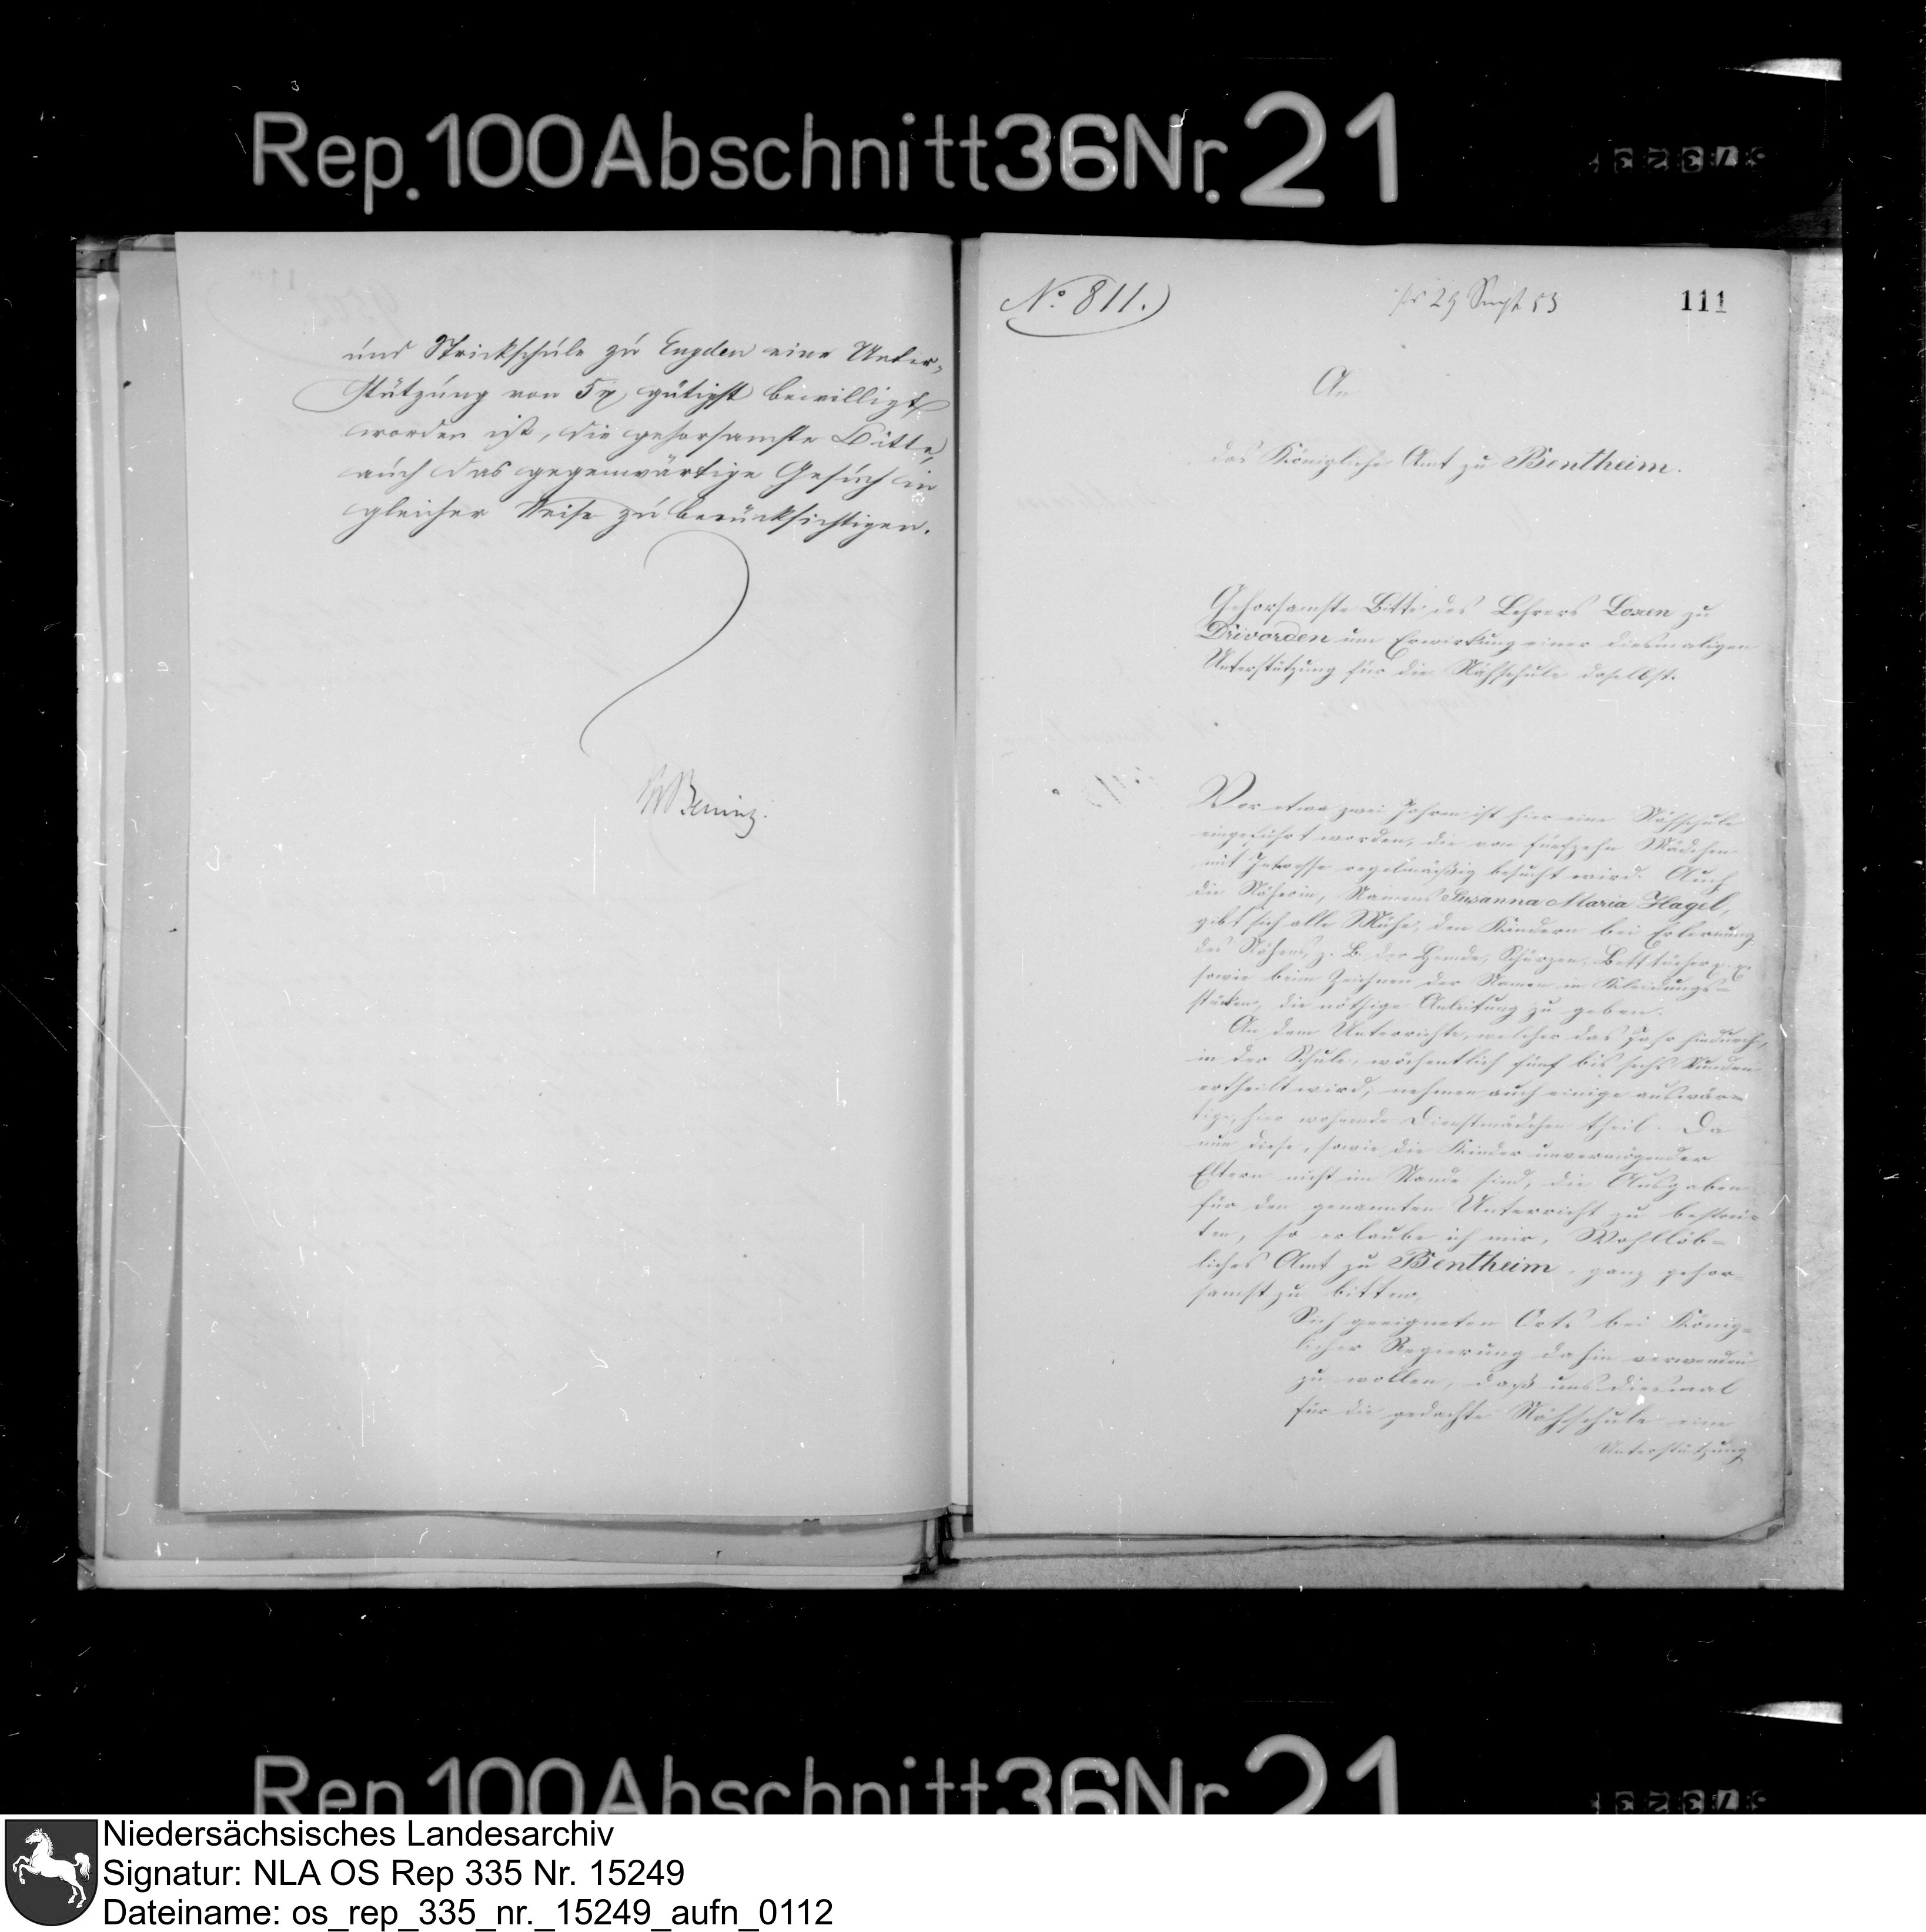 Rep. 100 Abschnitt 36 Nr. 21
und Strickschule zu Engden eine Unter-
stützung von 5 rp gütigst bewilligt
worden ist, die gehorsamste Bitte,
auch das gegenwärtige Gesuch in
gleicher Weise zu berücksichtigen.
Bening.
No 811.)
29 Sept 53
111
An
das Königliche Amt zu Bentheim.
Gehorsamste Bitte des Lehrers Loxen zu
Drivorden um Erwirkung einer diesmaligen
Unterstützung für die Nähschule daselbst.
Vor etwa zwei Jahren ist hier eine Nähschule
eingeführt worden, die von fünfzehn Mädchen
mit Interesse regelmäßig besucht wird. Auch
die Näherin, Namens Susanna Maria Hagel,
gibt sich alle Mühe, den Kindern bei Erlernung
des Nähens, z. B. der Hemde, Schürzen, Betttücher p. p.
sowie beim Zeichnen der Namen in Kleidungs-
stücken, die nöthige Anleitung zu geben.
An dem Unterrichte, welcher das Jahr hindurch,
in der Schule, wöchentlich fünf bis sechs Stunden
ertheilt wird, nehmen auch einige auswär-
tige, hier wohnende Dienstmädchen theil. Da
nun diese, sowie die Kinder unvermögender
Eltern nicht im Stande sind, die Ausgaben
für den genannten Unterricht zu bestrei-
ten, so erlaube ich mir, Wohllöb-
liches Amt zu Bentheim, ganz gehor-
samst zu bitten,
Sich geeigneten Orts bei König-
licher Regierung dahin verwenden
zu wollen, daß uns diesmal
für die gedachte Nähschule eine
Unterstützung
Rep. 100 Abschnitt 36 Nr. 21
Niedersächsisches Landesarchiv
Signatur: NLA OS Rep 335 Nr. 15249
Dateiname: os_rep_335_nr._15249_aufn_0112